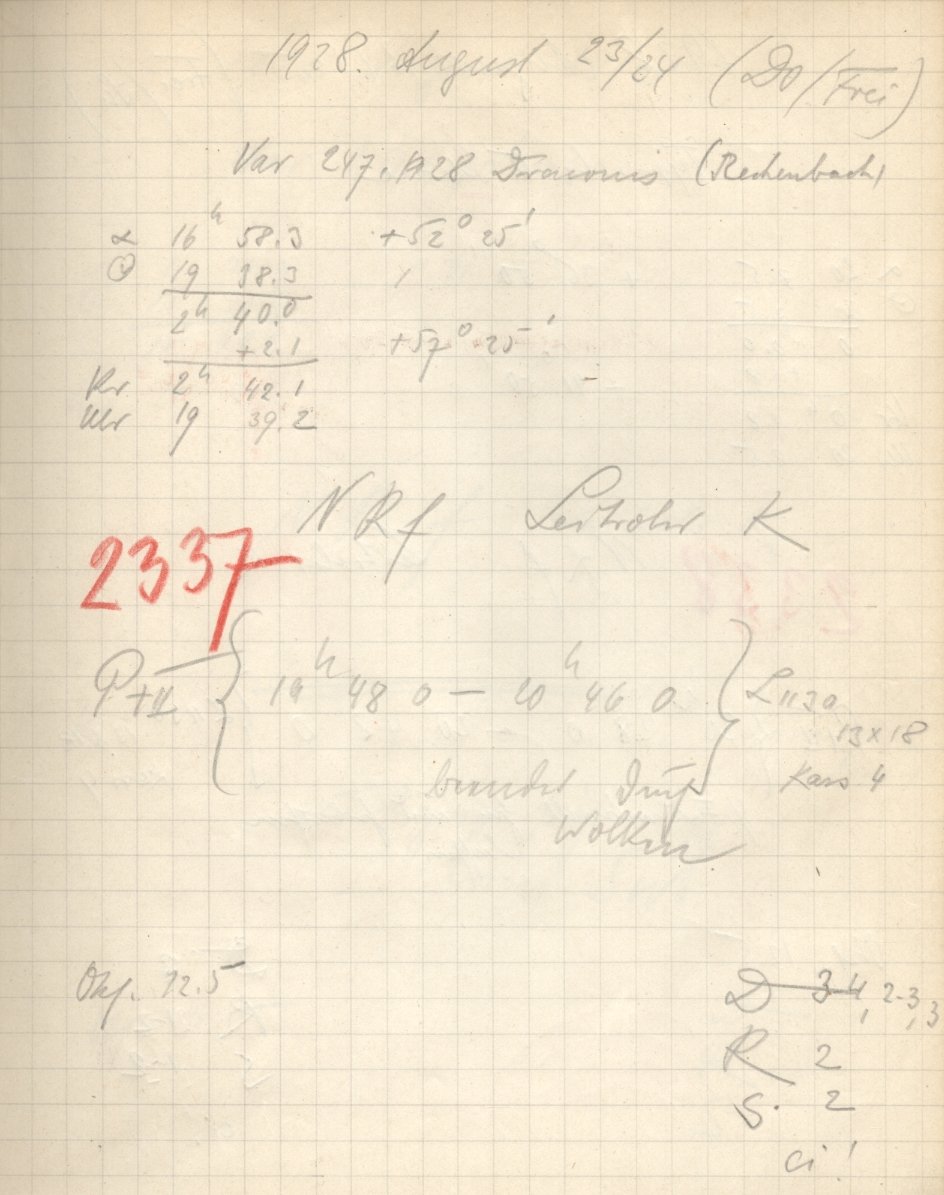 1928. August 23/24 (Do/Frei)
Var 247.1928 Draconis (Rechenbach)
α 16h 58.3 +52° 25'
19 38.3
2h 40.0
+2.1 +57° 25'
2h 42.1
Uhr 19 39.2
N Rf Leitrohr K
2337
19h 48 0 — 20h 46 0
13x18
Kass 4
beendet
Wolken
Okj. 12.5
D 3-4, 2-3, 3
R 2
S. 2
ci